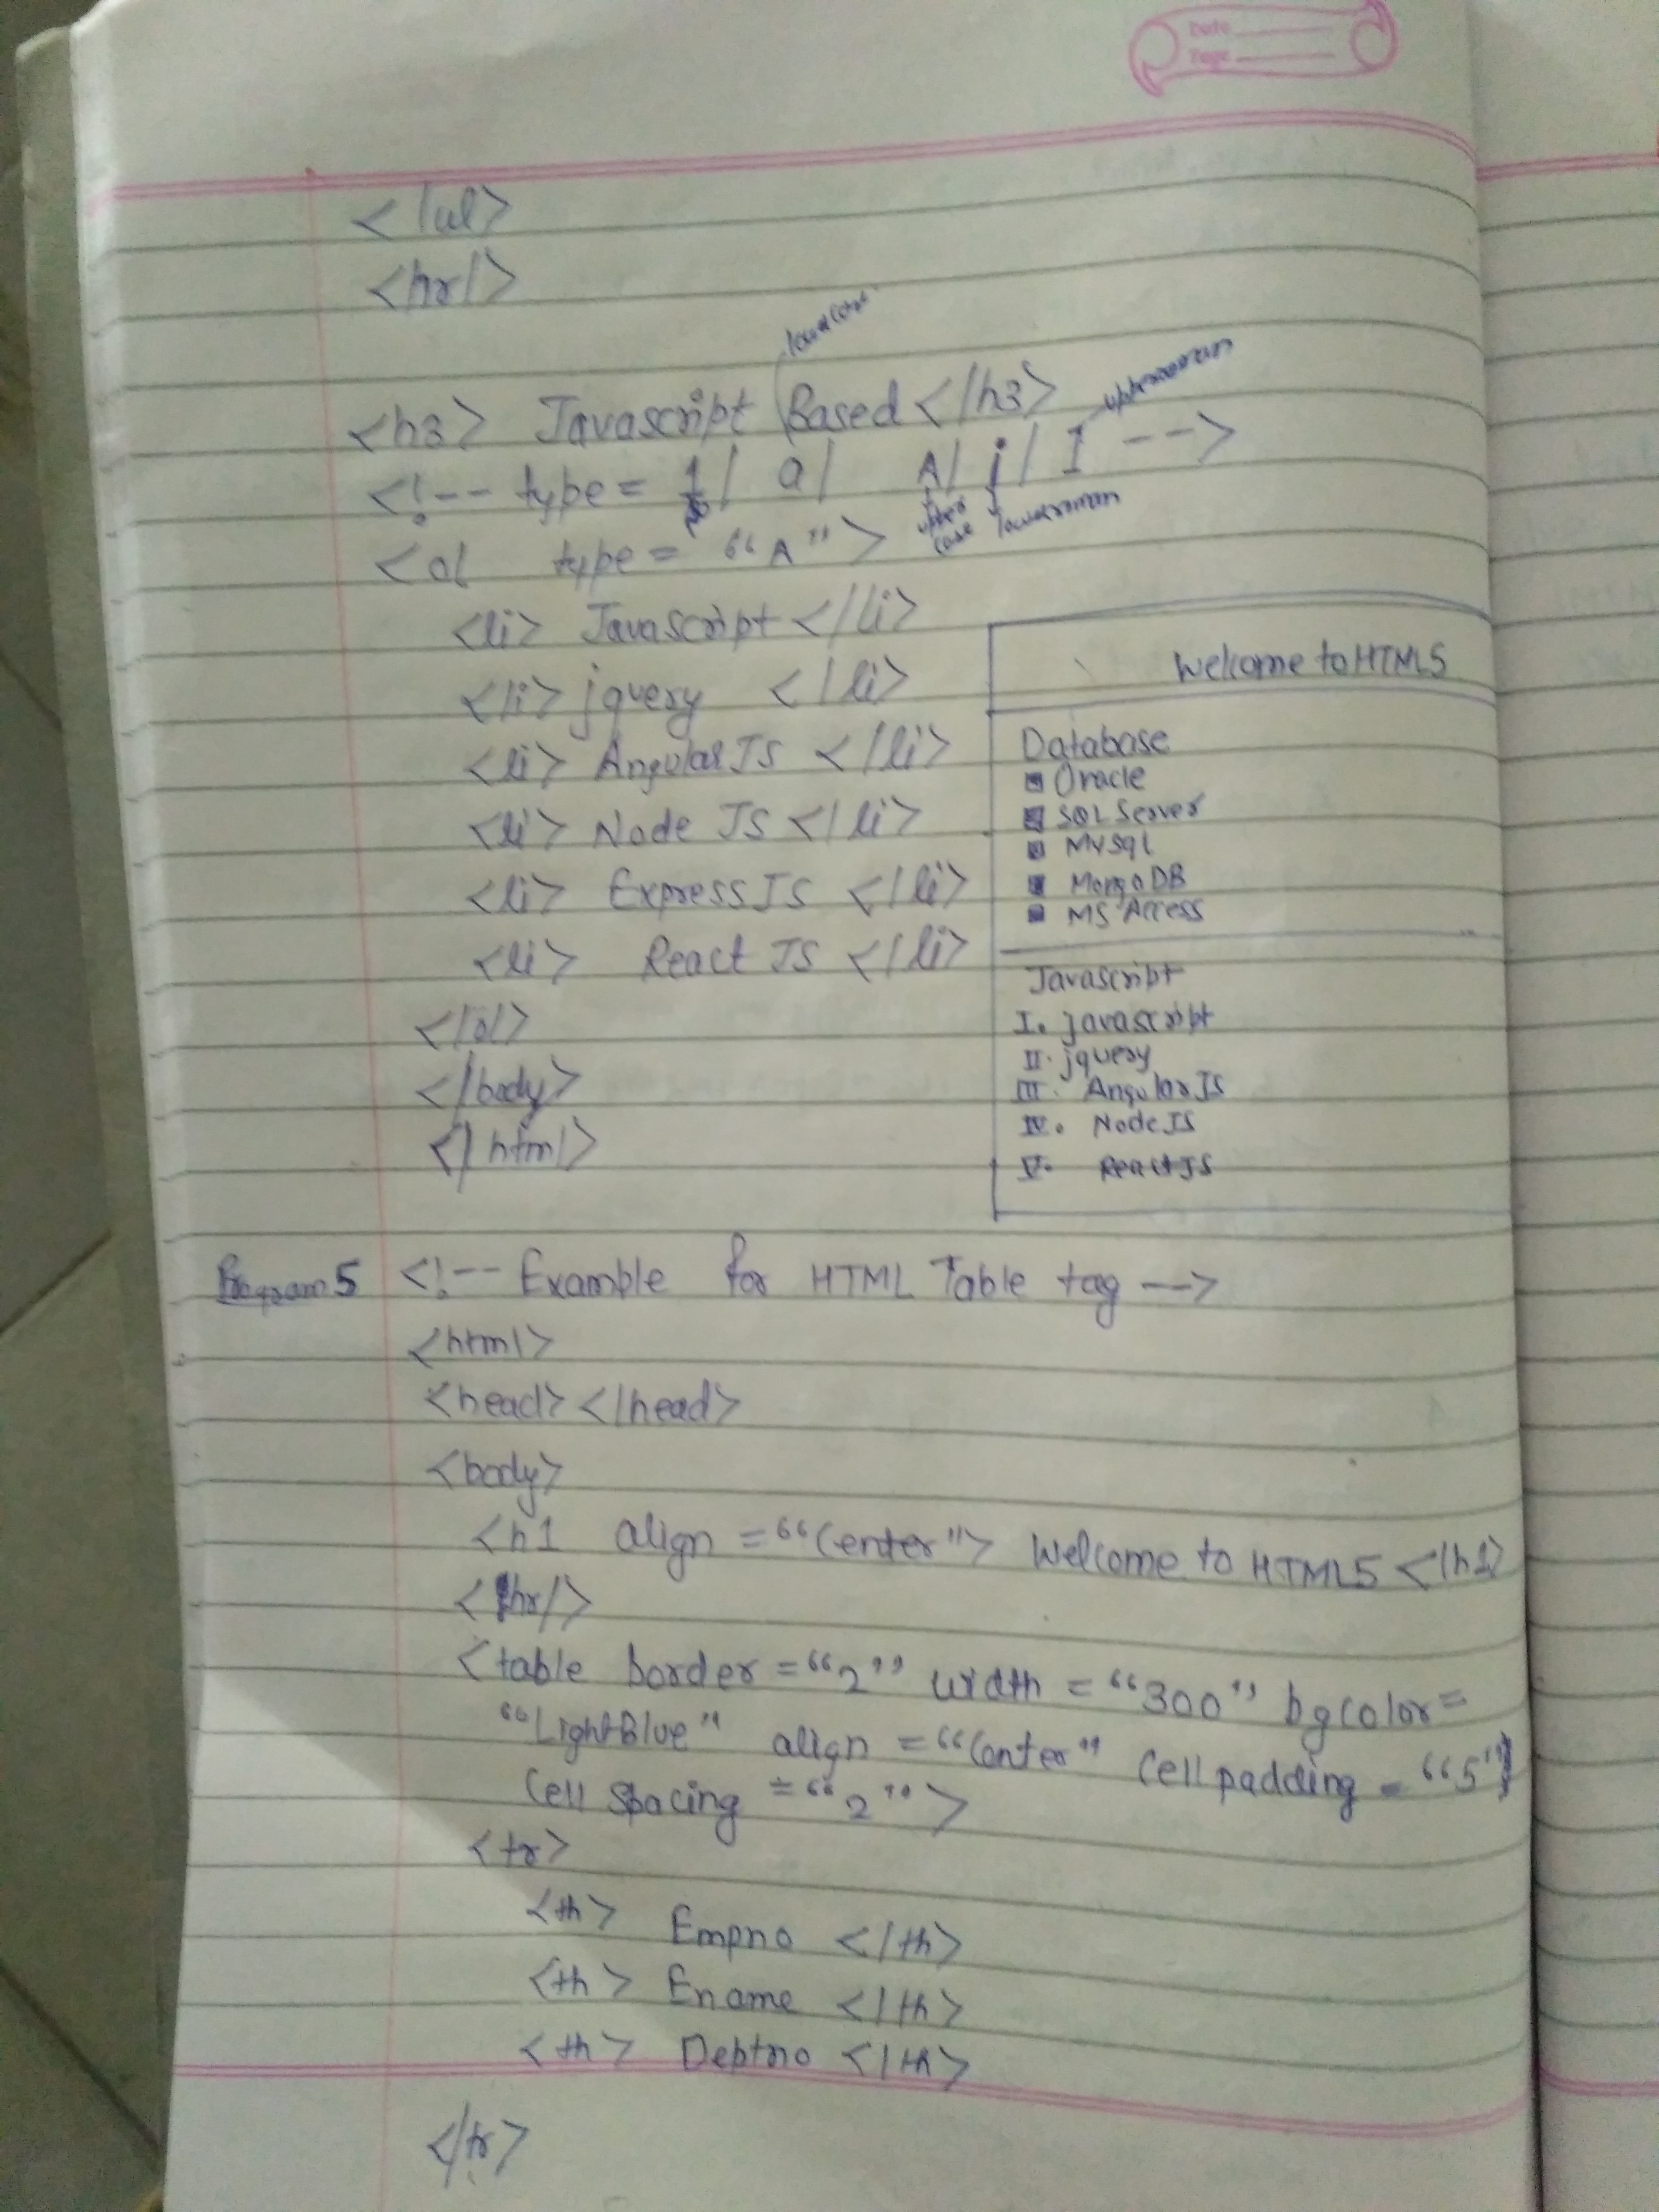 Date
Page
</ul>
<hr/>
lowercase
<h3> Javascript Based </h3>
upperroman
<!-- type = 1 | a | A | i | I -->
upper case lowerroman
<ol type = "A">
<li> Javascript </li>
<li> jquery </li>
<li> AngularJS </li>
<li> Node JS </li>
<li> ExpressJS </li>
<li> React JS </li>
</ol>
</body>
</html>
Welcome to HTML5
Database
Oracle
SQL Server
MySql
MongoDB
MS Access
Javascript
I. javascript
II. jquery
III. AngularJS
IV. NodeJS
V. ReactJS
Program 5 <!-- Example for HTML Table tag -->
<html>
<head> </head>
<body>
<h1 align = "Center"> Welcome to HTML5 </h1>
<hr/>
<table border = "2" width = "300" bgcolor =
"LightBlue" align = "Center" Cell padding = "5"
Cell Spacing = "2">
<tr>
<th> Empno </th>
<th> Ename </th>
<th> Deptno </th>
</tr>